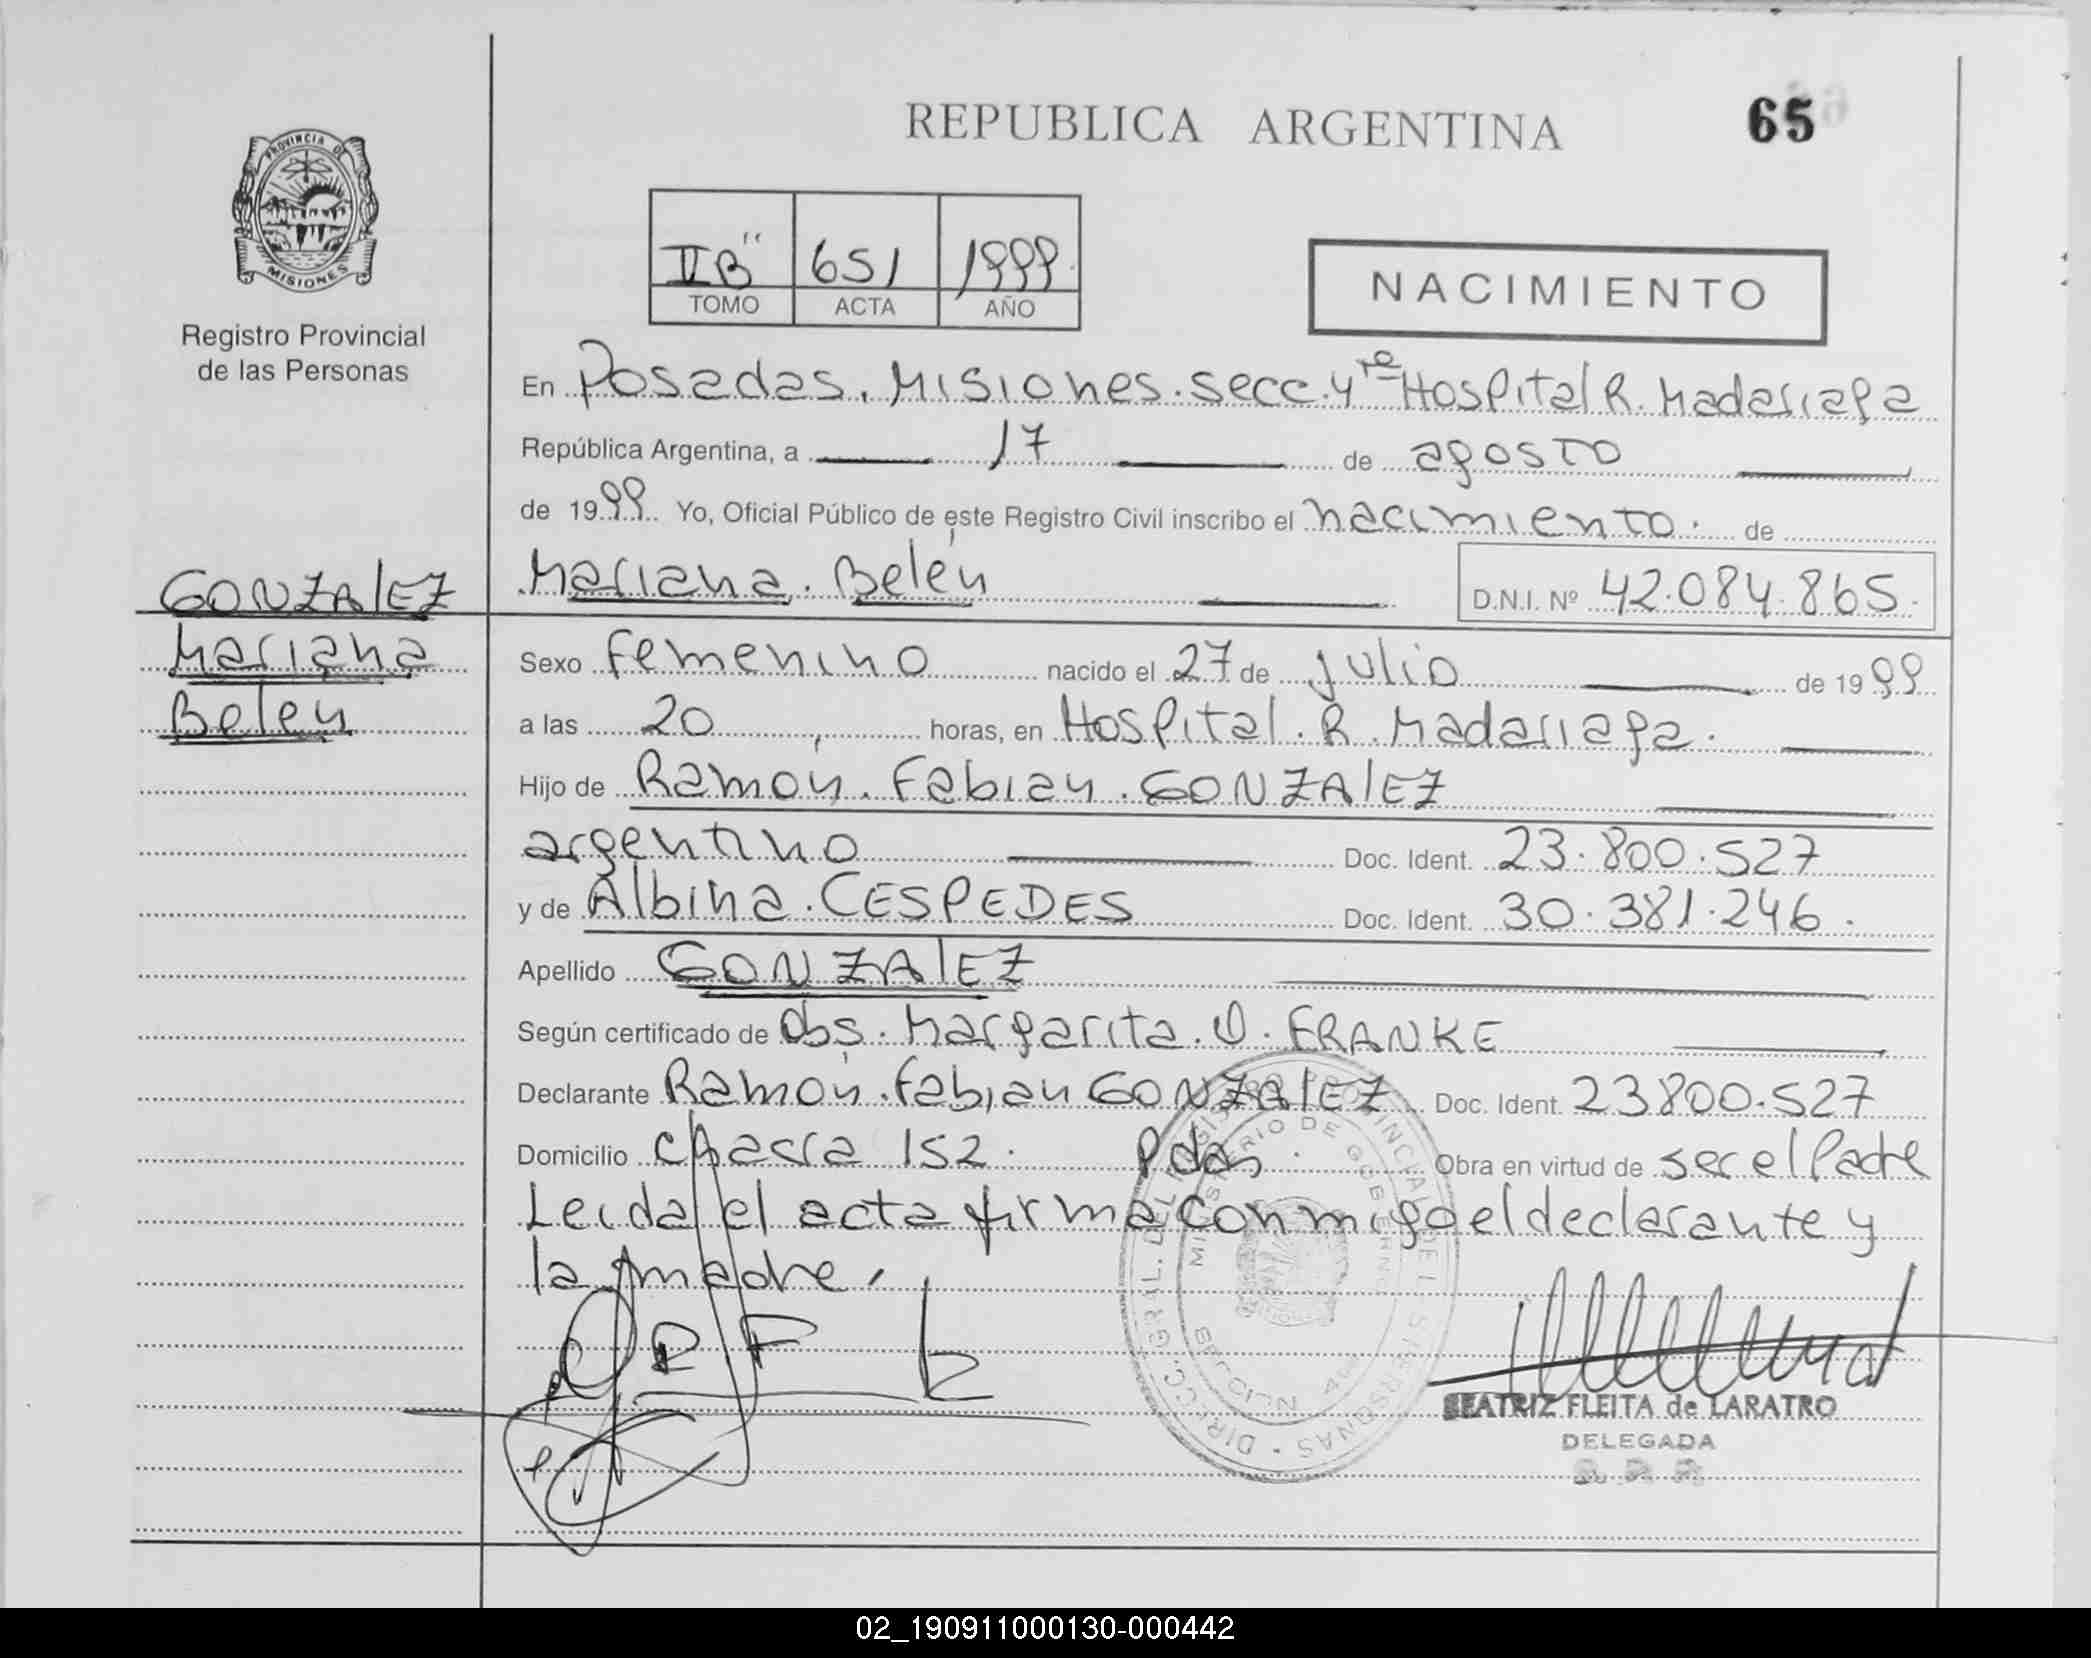 REPUBLICA ARGENTINA
65
PROVINCIA DE
MISIONES
Registro Provincial
de las Personas
II B" 651 1999
TOMO ACTA AÑO
NACIMIENTO
En Posadas. Misiones. secc. 4ta Hospital R. Madariaga
República Argentina, a 17 de agosto
de 1999 Yo, Oficial Público de este Registro Civil inscribo el nacimiento. de
Mariana. Belén D.N.I. Nº 42.084.865.
GONZALEZ
Mariana
Belen
Sexo femenino nacido el 27 de julio de 1999
a las 20 horas, en Hospital. R. Madariaga.
Hijo de Ramón. Fabian. GONZALEZ
argentino Doc. Ident. 23.800.527
y de Albina. CESPEDES Doc. Ident. 30.381.246.
Apellido GONZALEZ
Según certificado de Obs. Margarita. O. FRANKE
Declarante Ramón. Fabian GONZALEZ Doc. Ident. 23800.527
Domicilio chacra 152. Pdas. Obra en virtud de ser el Padre
Leida el acta firma conmigo el declarante y
la madre.
R F
DIRECC. GRAL. DEL REGISTRO PROVINCIAL DE LAS PERSONAS
MINISTERIO DE GOBIERNO
SECCION 4ta
BEATRIZ FLEITA de LARATRO
DELEGADA
02_190911000130-000442